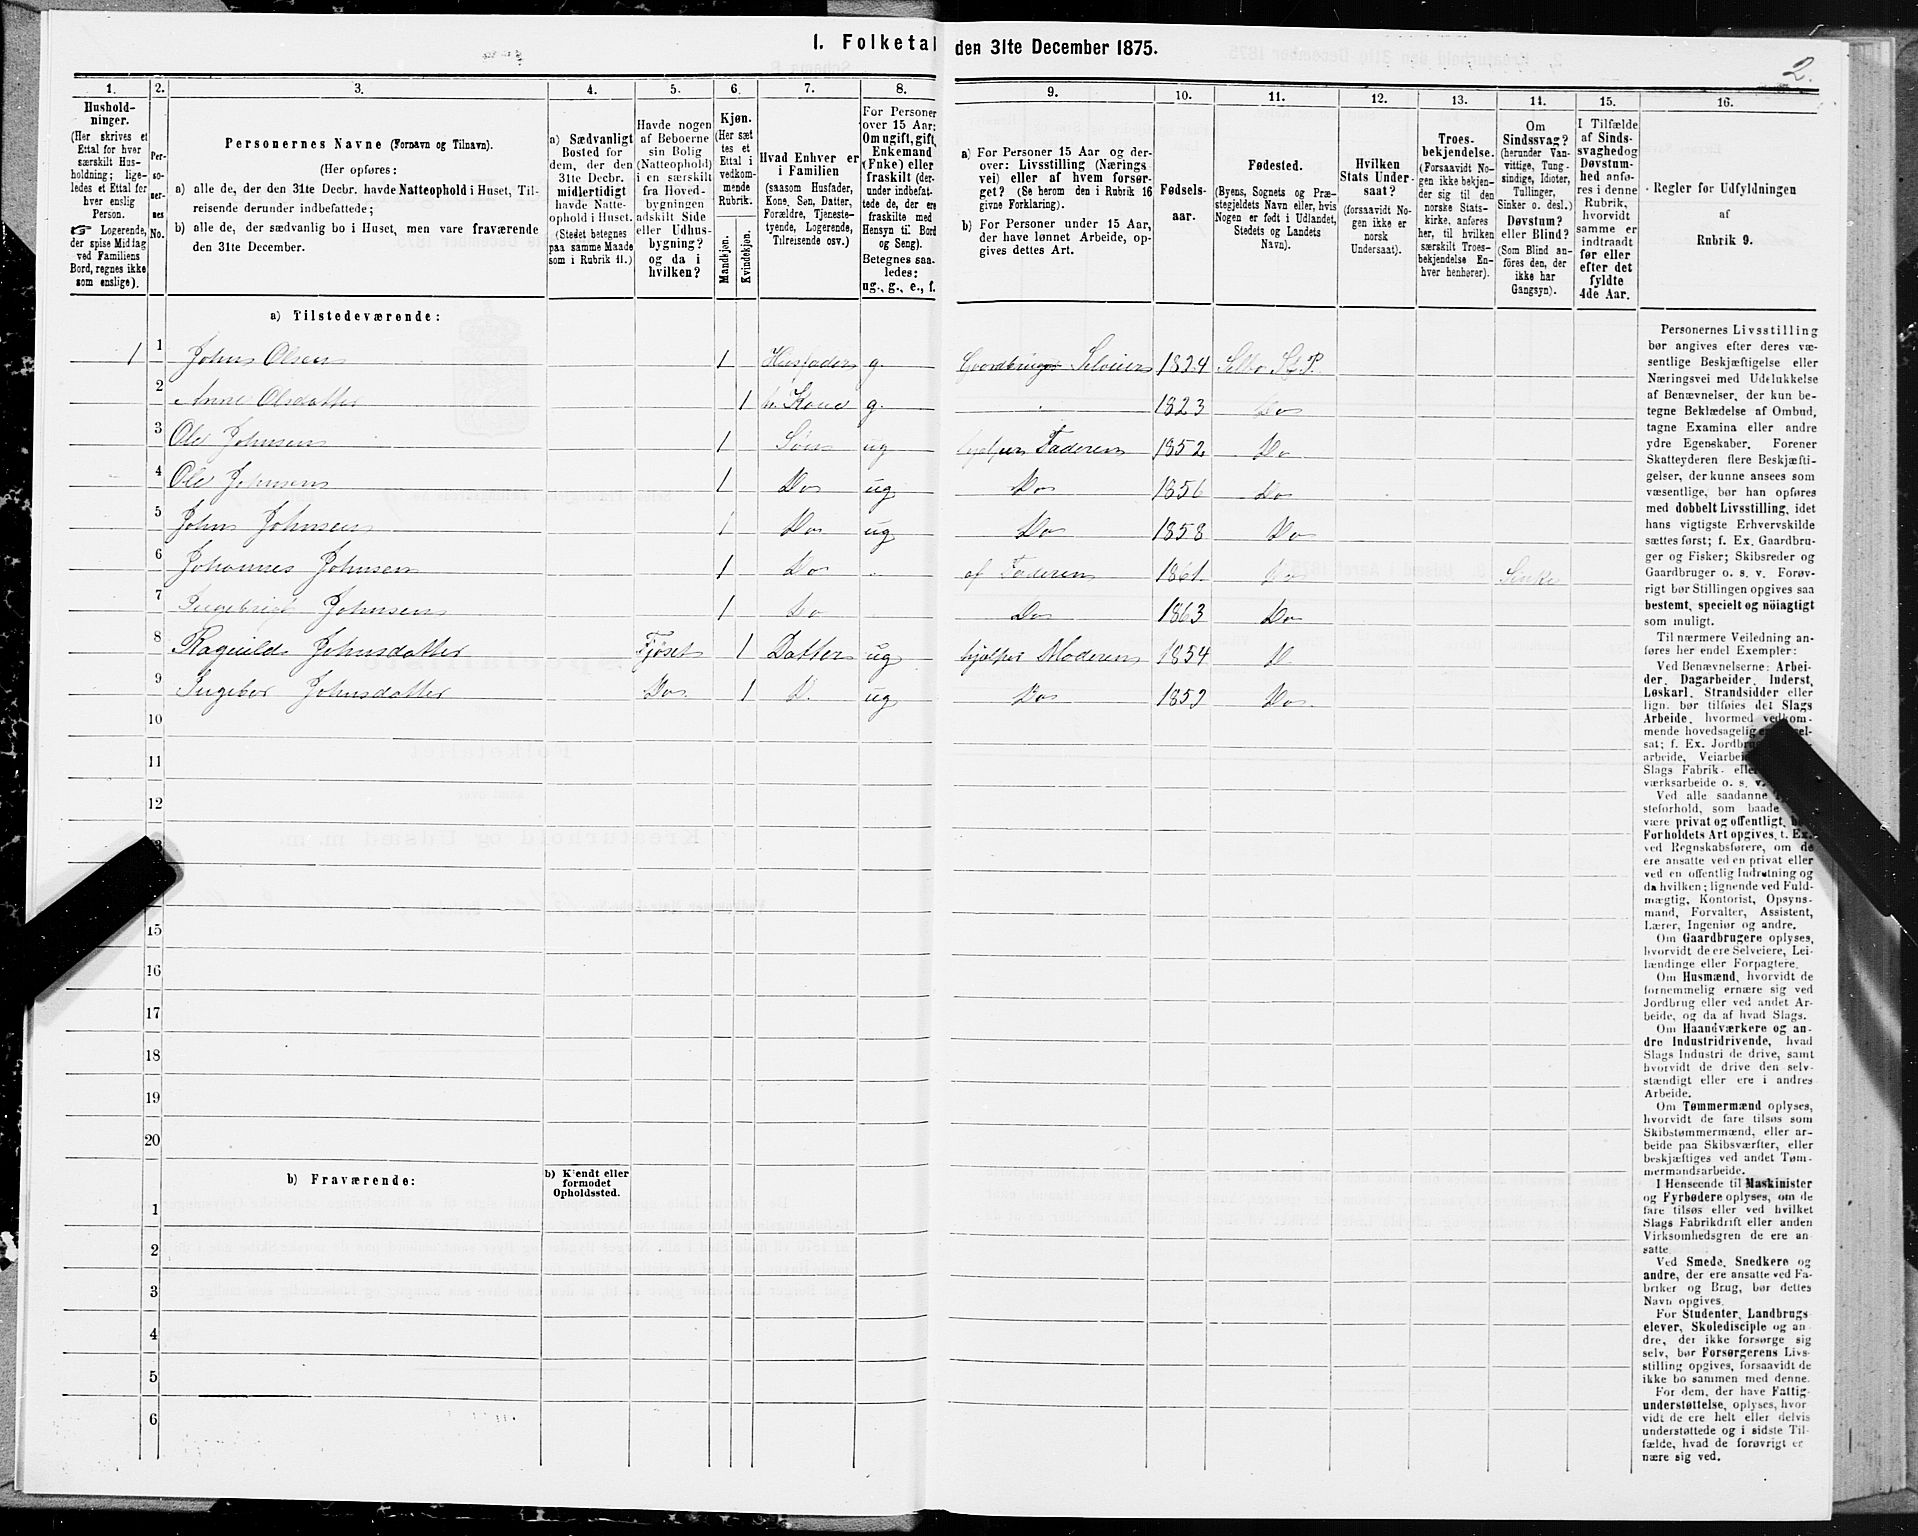 I. Folketal den 31te December 1875.
2.
1. 2. 3. 4. 5. 6. 7. 8. 9. 10. 11. 12. 13. 14. 15. 16.
Hushold-
ninger.
(Her skrives et
Ettal for hver
særskilt Hus-
holdning; lige-
ledes et Ettal for
hver enslig
Person.
☞ Logerende,
der spise Middag
ved Familiens
Bord, regnes ikke
som enslige).
Per-
so-
ner-
nes
No.
Personernes Navne (Fornavn og Tilnavn).
(Her opføres:
a) alle de, der den 31te Decbr. havde Natteophold i Huset, Til-
reisende derunder indbefattede;
b) alle de, der sædvanlig bo i Huset, men vare fraværende
den 31te December.
a) Sædvanligt
Bosted for
dem, der den
31te Decbr.
midlertidigt
havde Natte-
ophold i Huset.
(Stedet betegnes
paa samme Maade
som i Rubrik 11.)
Havde nogen
af Beboerne
sin Bolig
(Natteophold)
i en særskilt
fra Hoved-
bygningen
adskilt Side
eller Udhus-
bygning?
og da i
hvilken?
Kjøn.
(Her sæt
tes et
Ettal i
vedkom-
mende
Rubrik.
Mandkjøn.
Kvindekjøn.
Hvad Enhver er
i Familien
(saasom Husfader,
Kone, Søn, Datter,
Forældre, Tjeneste-
tyende, Logerende,
Tilreisende osv.)
For Personer
over 15 Aar:
Om ugift, gift,
Enkemand
(Enke) eller
fraskilt (der-
under indbefat-
tede de, der ere
fraskilte med
Hensyn til Bord
og Seng).
Betegnes saa-
ledes:
ug., g., e., f.
a) For Personer 15 Aar og der-
over: Livsstilling (Nærings
vei) eller af hvem forsør-
get? (Se herom den i Rubrik 16
givne Forklaring).
b) For Personer under 15 Aar,
der have lønnet Arbeide, op-
gives dettes Art.
Fødsels-
aar.
Fødested.
(Byens, Sognets og Præ-
stegjeldets Navn eller, hvis
Nogen er født i Udlandet,
Stedets og Landets
Navn).
Hvilken
Stats Under-
saat?
(forsaavidt No-
gen ikke er
norsk
Undersaat).
Troes-
bekjendelse.
(Forsaavidt No-
gen ikke bekjen-
der sig til den
norske Stats-
kirke, anføres
her, til hvilken
særskilt Troes-
bekjendelse En-
hver henhører).
Om
Sindssvag?
(herunder Van-
vittige, Tung-
sindige, Idioter,
Tullinger,
Sinker o. desl.)
Døvstum?
eller Blind?
(Som Blind an-
føres den, der
ikke har
Gangsyn).
I Tilfælde
af Sinds-
svaghed og
Døvstum-
hed anfø-
res i denne
Rubrik,
hvorvidt
samme er
indtraadt
før eller
efter det
fyldte
4de Aar.
Regler for Udfyldningen
af
Rubrik 9.
a) Tilstedeværende:
1 1 John Olsen 1 Husfader g. Gaardbruger Selveier 1824 Selbo
2 Anne Olsdatter 1 h. Kone g. 1823 Do
3 Ole Johnsen 1 Søn ug hjelper Faderen 1852 Do
4 Ole Johnsen 1 Do ug Do 1856 Do
5 John Johnsen 1 Do ug Do 1858 Do
6 Johannes Johnsen 1 Do af Faderen 1861 Do Sinke
7 Ingebrigt Johnsen 1 Do Do 1863 Do
8 Raguild Johnsdatter Fjøset 1 Datter ug hjælper Moderen 1854 D.
9 Ingebor Johnsdatter Do 1 D. ug Do Do
10
11
12
15
16
17
18
19
20
b) Fraværende:
b) Kjendt eller
formodet
Opholdssted.
1
2
3
4
5
6
Personernes Livsstilling
bør angives efter deres væ-
sentlige Beskjæftigelse eller
Næringsvei med Udelukkelse
af Benævnelser, der kun be-
tegne Beklædelse af Ombud,
tagne Examina eller andre
ydre Egenskaber. Forener
Skatteyderen flere Beskjæfti-
gelser, der kunne ansees som
væsentlige, bør han opføres
med dobbelt Livsstilling, idet
hans vigtigste Erhvervskilde
sættes først; f. Ex. Gaardbru-
ger og Fisker; Skibsreder og
Gaardbruger o. s. v. Forøv-
rigt bør Stillingen opgives saa
bestemt, specielt og nöiagtigt
som muligt.
Til nærmere Veiledning an-
føres her endel Exempler:
Ved Benævnelserne: Arbei-
der, Dagarbeider, Inderst,
Løskarl, Strandsidder eller
lign. bør tilføies det Slags
Arbeide, hvormed vedkom-
mende hovedsagelig
sat; f. Ex.
arbeide,
Slags Fabrik- eller
værksarbeide o. s. v.
Ved alle saadanne
steforhold, som baade
være privat og offentligt,
Forholdets Art opgives, t. Ex.
ved Regnskabsførere, om de
ere ansatte ved en privat eller
ved en offentlig Indretning og
da hvilken; lignende ved Fuld-
mægtig, Kontorist, Opsyns-
mand, Forvalter, Assistent,
Lærer, Ingeniør og andre.
Om Gaardbrugere oplyses,
hvorvidt de ere Selveiere, Lei-
lændinge eller Forpagtere.
Om Husmænd, hvorvidt de
fornemmelig ernære sig ved
Jordbrug eller ved andet Ar-
beide, og da af hvad Slags.
Om Haandværkere og an-
dre Industridrivende, hvad
Slags Industri de drive, samt
hvorvidt de drive den selv-
stændigt eller ere i andres
Arbeide.
Om Tømmermænd oplyses,
hvorvidt de fare tilsøs som
Skibstømmermænd, eller ar-
beide paa Skibsværfter, eller
beskjæftiges ved andet Tøm-
mermandsarbeide.
I Henseende til Maskinister
og Fyrbødere oplyses, om de
fare tilsøs eller ved hvilket
Slags Fabrikdrift eller anden
Virksomhedsgren de ere an-
satte.
Ved Smede, Snedkere og
andre, der ere ansatte ved Fa-
briker og Brug, bør dettes
Navn opgives.
For Studenter, Landbrugs-
elever, Skoledisciple og an-
dre, der ikke forsørge sig
selv, bør Forsørgerens Livs-
stilling opgives, forsaavidt de
ikke bo sammen med denne.
For dem, der have Fattig-
understøttelse, oplyses, hvor-
vidt de ere helt eller delvis
understøttede og i sidste Til-
fælde, hvad de forøvrigt er
nære sig ved.